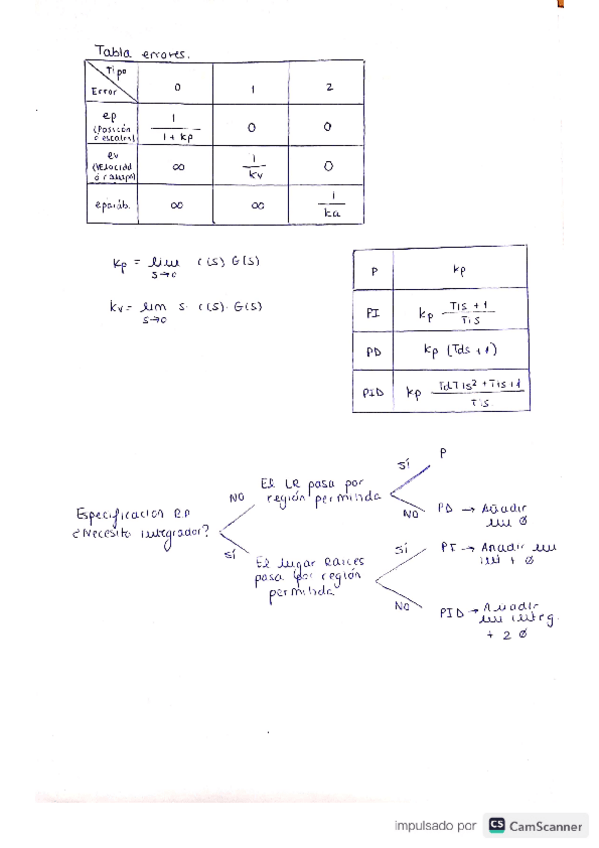 Tabla errores.
Tipo
Error
0
1
2
ep
(Posición
ó escalón)
1
1 + kp
0
0
ev
(Velocidad
ó rampa)
∞
1
kv
0
eparáb.
∞
∞
1
ka
kp = lim C(s) G(s)
s→0
kv = lim s · C(s) · G(s)
s→0
P
kp
PI
kp Tis + 1
Tis
PD
kp (Tds + 1)
PID
kp TdTis² + Tis + 1
Tis
Especificación ep
¿Necesito integrador?
NO
El LR pasa por
región permitida
SÍ
P
NO
PD → Añadir
un Ø
SÍ
El lugar raíces
pasa por región
permitida
SÍ
PI → Añadir un
int + Ø
NO
PID → Añadir
un integ.
+ 2 Ø
impulsado por CS CamScanner